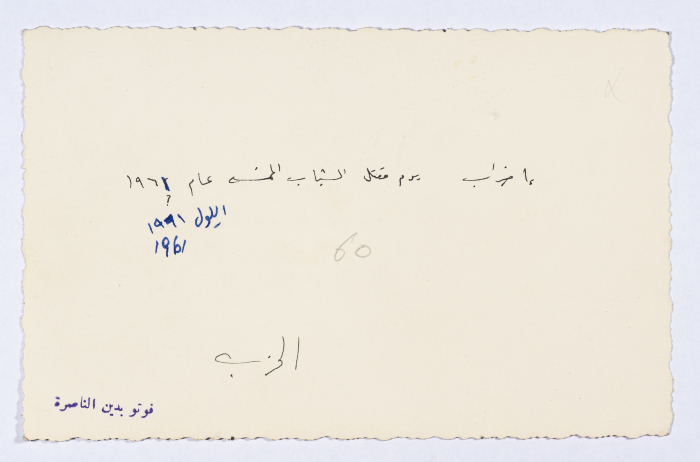 إضراب يوم مقتل الشباب الخمسة عام ١٩٦١
؟
ايلول ١٩٩١
1961
60
الحزب
فوتو بدين الناصرة